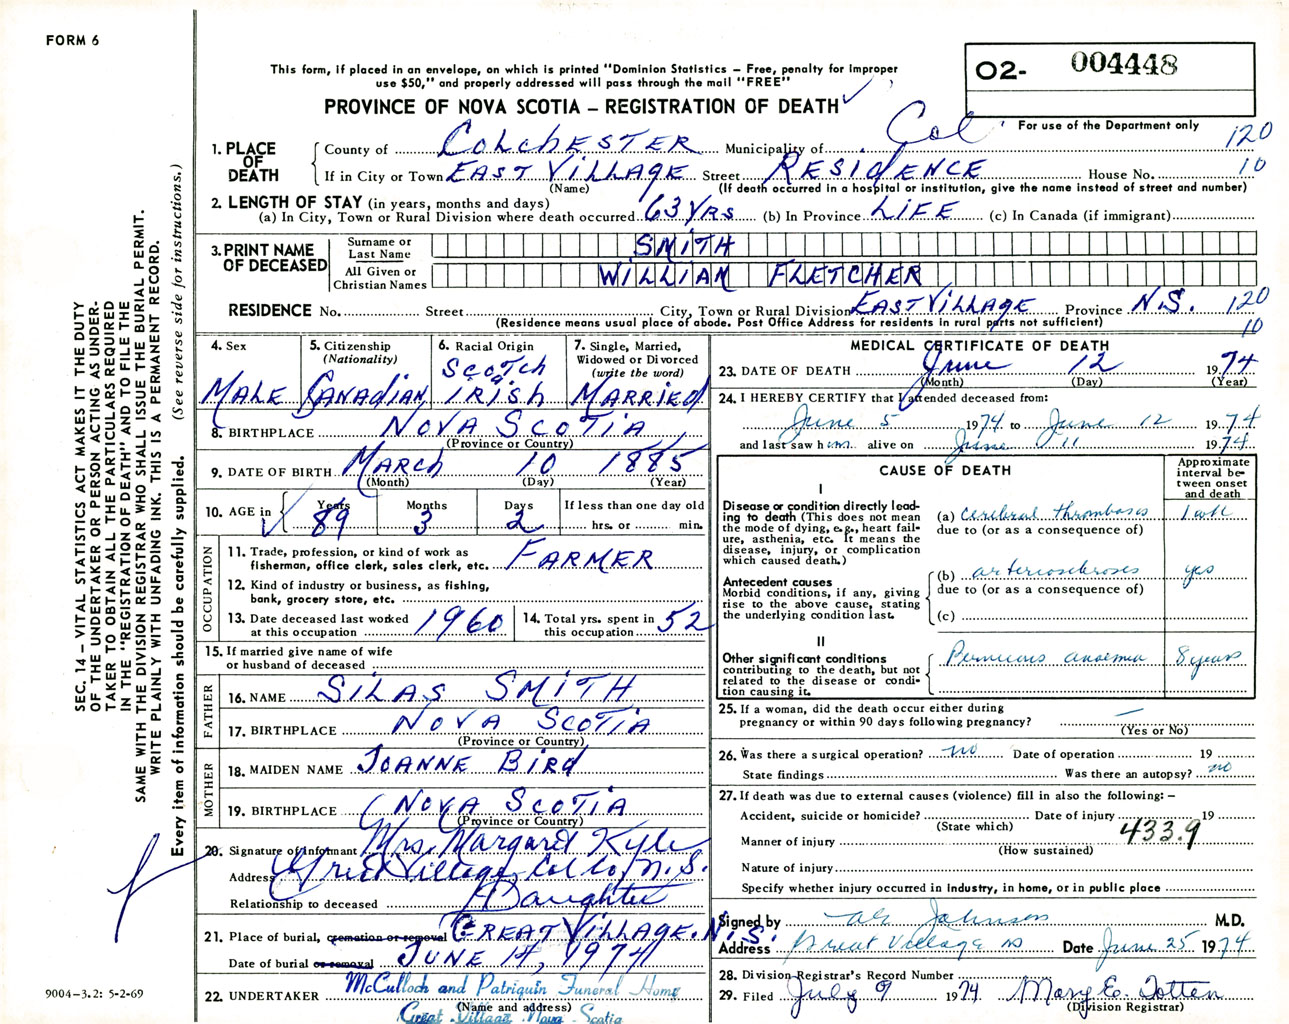 FORM 6
This form, if placed in an envelope, on which is printed "Dominion Statistics – Free, penalty for improper
use $50," and properly addressed will pass through the mail "FREE"
PROVINCE OF NOVA SCOTIA – REGISTRATION OF DEATH
O2- 004448
For use of the Department only
1. PLACE OF DEATH
County of COLCHESTER Municipality of Col 120
If in City or Town EAST VILLAGE Street RESIDENCE House No. 10
(Name) (If death occurred in a hospital or institution, give the name instead of street and number)
2. LENGTH OF STAY (in years, months and days)
(a) In City, Town or Rural Division where death occurred 63 YRS (b) In Province LIFE (c) In Canada (if immigrant)
3. PRINT NAME OF DECEASED
Surname or Last Name SMITH
All Given or Christian Names WILLIAM FLETCHER
RESIDENCE No. Street City, Town or Rural Division EAST VILLAGE Province N.S. 120
(Residence means usual place of abode. Post Office Address for residents in rural parts not sufficient) 10
4. Sex MALE
5. Citizenship (Nationality) CANADIAN
6. Racial Origin SCOTCH IRISH
7. Single, Married, Widowed or Divorced (write the word) MARRIED
8. BIRTHPLACE NOVA SCOTIA
(Province or Country)
9. DATE OF BIRTH MARCH 10 1885
(Month) (Day) (Year)
10. AGE in Years 89 Months 3 Days 2 If less than one day old hrs. or min.
OCCUPATION
11. Trade, profession, or kind of work as
fisherman, office clerk, sales clerk, etc. FARMER
12. Kind of industry or business, as fishing,
bank, grocery store, etc.
13. Date deceased last worked
at this occupation 1960
14. Total yrs. spent in
this occupation 52
15. If married give name of wife
or husband of deceased
FATHER
16. NAME SILAS SMITH
17. BIRTHPLACE NOVA SCOTIA
(Province or Country)
MOTHER
18. MAIDEN NAME JOANNE BIRD
19. BIRTHPLACE NOVA SCOTIA
(Province or Country)
20. Signature of informant Mrs. Margaret Kyle
Address Great Village, Col Co, N.S.
Relationship to deceased Daughter
21. Place of burial, cremation or removal GREAT VILLAGE. N.S.
Date of burial or removal JUNE 14, 1974
22. UNDERTAKER McCulloch and Patriquin Funeral Home
(Name and address)
Great Village Nova Scotia
MEDICAL CERTIFICATE OF DEATH
23. DATE OF DEATH June 12 1974
(Month) (Day) (Year)
24. I HEREBY CERTIFY that I attended deceased from:
June 5 1974 to June 12 1974
and last saw him alive on June 11 1974
CAUSE OF DEATH
Approximate interval between onset and death
I
Disease or condition directly lead-
ing to death (This does not mean
the mode of dying, e.g., heart fail-
ure, asthenia, etc. It means the
disease, injury, or complication
which caused death.)
(a) cerebral thrombosis 1 wk
due to (or as a consequence of)
Antecedent causes
Morbid conditions, if any, giving
rise to the above cause, stating
the underlying condition last.
(b) arteriosclerosis yes
due to (or as a consequence of)
(c)
II
Other significant conditions
contributing to the death, but not
related to the disease or condi-
tion causing it.
Pernicious anaemia 8 years
25. If a woman, did the death occur either during
pregnancy or within 90 days following pregnancy? —
(Yes or No)
26. Was there a surgical operation? no Date of operation 19
State findings Was there an autopsy? no
27. If death was due to external causes (violence) fill in also the following: –
Accident, suicide or homicide? Date of injury 19
(State which)
Manner of injury 433.9
(How sustained)
Nature of injury
Specify whether injury occurred in industry, in home, or in public place
Signed by Johnson M.D.
Address Great Village NS Date June 25 1974
28. Division Registrar's Record Number
29. Filed July 9 1974 Mary E. Totten
(Division Registrar)
SEC. 14 – VITAL STATISTICS ACT MAKES IT THE DUTY
OF THE UNDERTAKER OR PERSON ACTING AS UNDER-
TAKER TO OBTAIN ALL THE PARTICULARS REQUIRED
IN THE "REGISTRATION OF DEATH" AND TO FILE THE
SAME WITH THE DIVISION REGISTRAR WHO SHALL ISSUE THE BURIAL PERMIT.
WRITE PLAINLY WITH UNFADING INK. THIS IS A PERMANENT RECORD.
Every item of information should be carefully supplied. (See reverse side for instructions.)
9004-3.2: 5-2-69